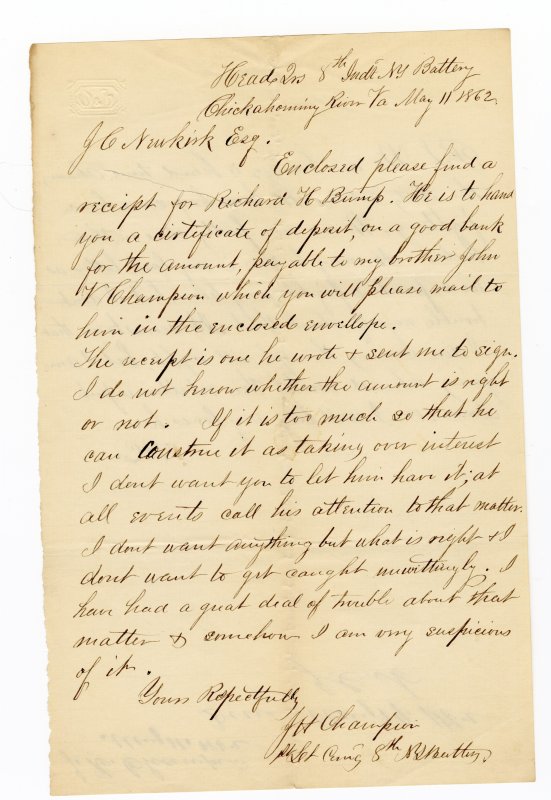 Head Qrs 8th Indt NY Battery
Chickahominy River Va May 11 1862.
J C Newkirk Esq.
Enclosed please find a
receipt for Richard H Bump. He is to hand
you a certificate of deposit, on a good bank
for the amount, payable to my brother John
V Champion which you will please mail to
him in the enclosed envellope.
The receipt is one he wrote & sent me to sign.
I do not know whether the amount is right
or not. If it is too much so that he
can construe it as taking over interest
I dont want you to let him have it; at
all events call his attention to that matter.
I dont want anything but what is right & I
dont want to get caught unwittingly. I
have had a great deal of trouble about that
matter & somehow I am very suspicious
of it.
Yours Respectfully
J H Champion
1st Lt Com'g 8th NY Battery